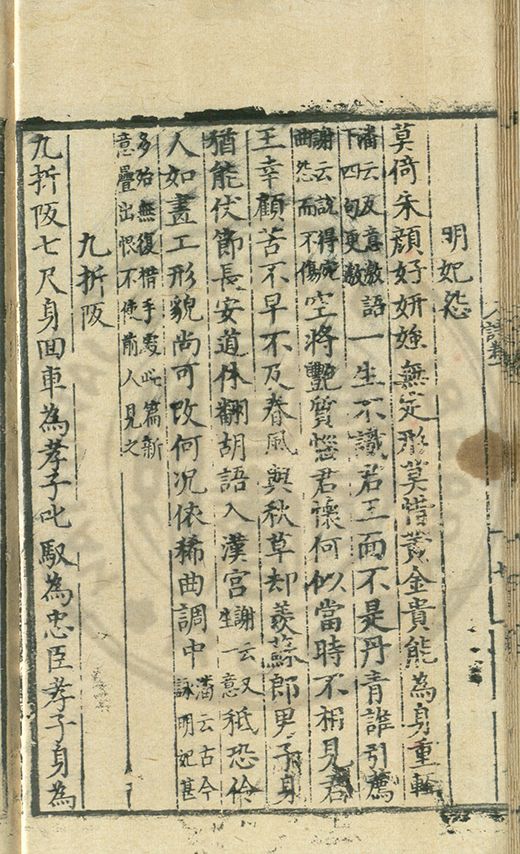 明妃怨
莫倚朱顏好妍媸無定形莫惜黃金貴能為身重輕
潘云反意數語下四句更數一生不識君王面不是丹青誰引薦
謝云說得宛曲怨而不傷空將艷質惱君懷何似當時不相見君
王幸顧苦不早不及春風與秋草却羨蘇郎男子身
猶能仗節長安道休翻胡語入漢宮謝云又生一意秪恐伶
人如畫工形貌尚可改何況依稀曲調中潘云古今詠明妃甚
多殆無復措手處此篇新意疊出恨不使前人見之
九折阪
九折阪七尺身回車為孝子叱馭為忠臣孝子身為